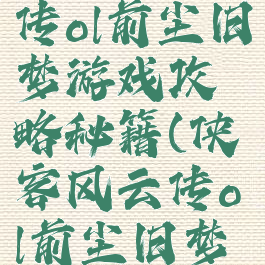 传ol前尘旧
梦游戏攻
略秘籍(侠
客风云传o
l前尘旧梦